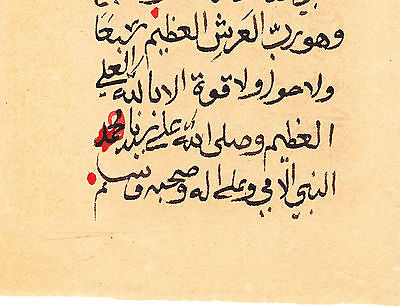 وهو رب العرش العظيم سبعا
ولا حول ولا قوة الا بالله العلي
العظيم وصلى الله على سيدنا محمد
النبي الامي وعلى اله وصحبه وسلم